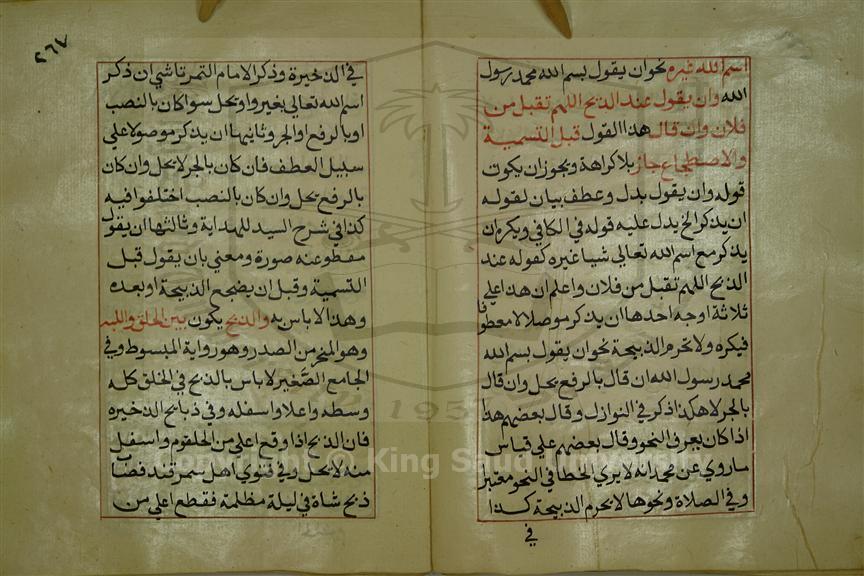 اسم الله غيره نحو ان يقول بسم الله محمد رسول
الله وان يقول عند الذبح اللهم تقبل من
فلان وان قال هذا القول قبل التسمية
والاضطجاع جاز بلا كراهة ويجوز ان يكون
قوله وان يقول بدل وعطف بيان لقوله
ان يذكر الخ يدل عليه قوله في الكافي ويكره ان
يذكر مع اسم الله تعالى شيا غيره كقوله عند
الذبح اللهم تقبل من فلان واعلم ان هذا علي
ثلاثة اوجه احدها ان يذكر موصلا لا معطوفا
فيكره ولا تحرم الذبيحة نحو ان يقول بسم الله
محمد رسول الله ان قال بالرفع يحل وان قال
بالجر لا هكذا ذكر في النوازل وقال بعضهم هذا
اذا كان يعرف النحو وقال بعضهم علي قياس
ما روي عن محمد انه لا يري الخطا في النحو معتبرا
وفي الصلاة ونحوها لا يحرم الذبيحة كذا
في
٢٦٧
في الذخيرة وذكر الامام التمرتاشي ان ذكر
اسم الله تعالي بغير واو يحل سوا كان بالنصب
او بالرفع او الجر وثانيها ان يذكر موصولا علي
سبيل العطف فان كان بالجر لا يحل وان كان
بالرفع يحل وان كان بالنصب اختلفوا فيه
كذا في شرح السيد للهداية وثالثها ان يقول
مفطوعنه صورة ومعني بان يقول قبل
التسمية وقبل ان يضجع الذبيحة او بعده
وهذا لا باس به والذبح يكون بين الحلق واللبه
وهو المنحر من الصدر وهو رواية المبسوط وفي
الجامع الصغير لا باس بالذبح في الحلق كله
وسطه واعلا واسفله وفي ذبايح الذخيره
فان الذبح اذا وقع اعلي من الحلقوم واسفل
منه لا يحل وفي فتوي اهل سمرقند قصاب
ذبح شاة في ليلة مظلمة فقطع اعلي من
Copyright © King Saud University
1957